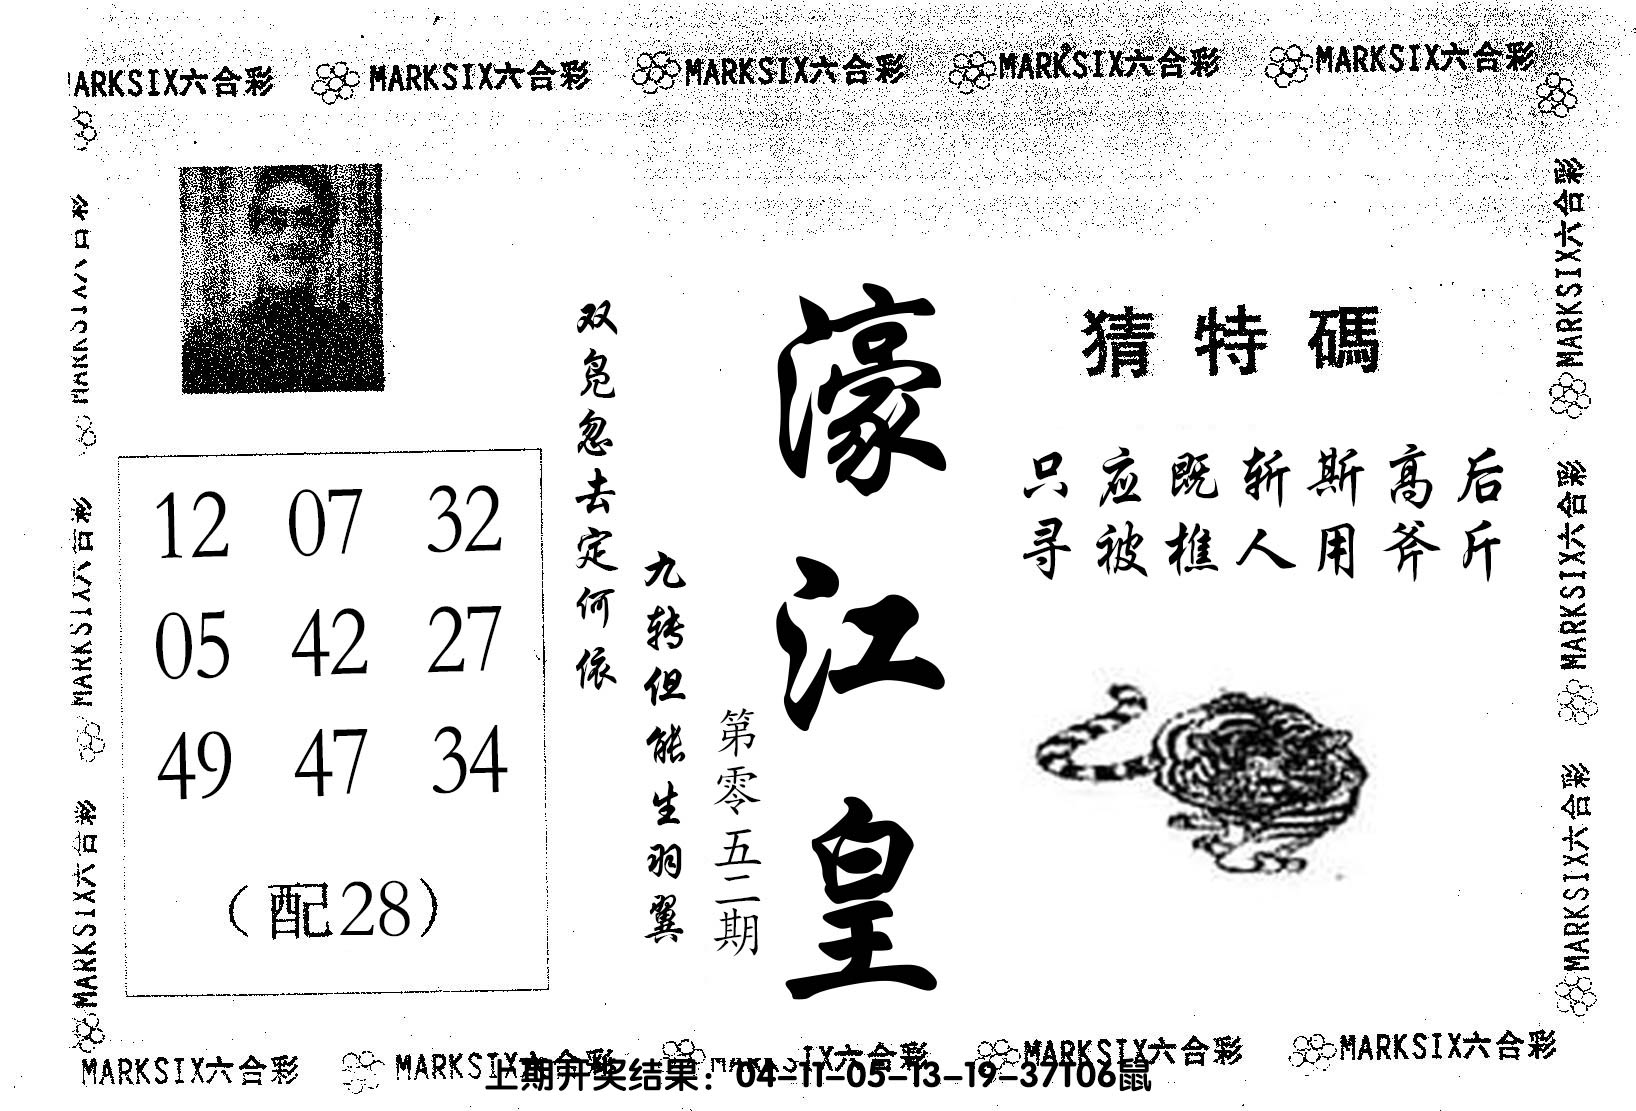 MARKSIX六合彩 MARKSIX六合彩 MARKSIX六合彩 MARKSIX六合彩 MARKSIX六合彩
猜特碼
只应既斩斯高后
寻被樵人用斧斤
濠江皇
第零五二期
九转但能生羽翼
双凫忽去定何依
12 07 32
05 42 27
49 47 34
(配28)
MARKSIX六合彩
MARKSIX六合彩
MARKSIX六合彩
MARKSIX六合彩
MARKSIX六合彩
MARKSIX六合彩
MARKSIX六合彩 MARKSIX六合彩 MARKSIX六合彩 MARKSIX六合彩 MARKSIX六合彩
上期开奖结果：04-11-05-13-19-37T06鼠